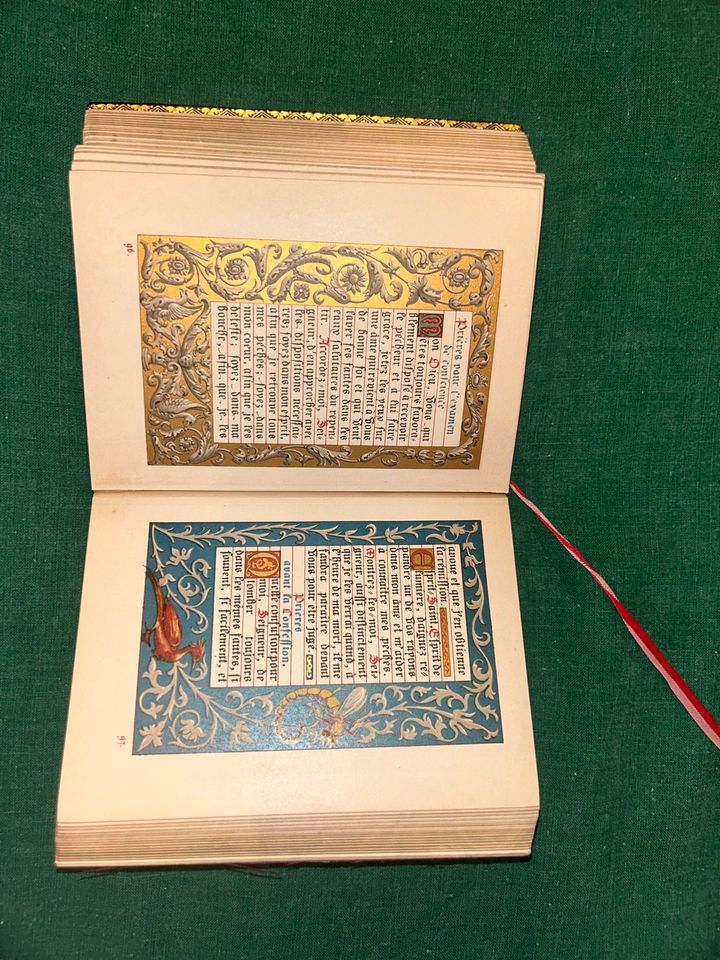 Prières pour l'examen
de conscience
Mon Dieu, Vous qui
êtes toujours favora-
blement disposé à recevoir
le pécheur et à lui faire
grâce, jetez les yeux sur
une âme qui revient à Vous
de bonne foi et qui veut
laver ses fautes dans les
eaux salutaires du repen-
tir. Accordez-moi, Sei-
gneur, d'en approcher avec
les dispositions nécessai-
res; soyez dans mon esprit,
afin que je retrouve tous
mes péchés; soyez dans
mon coeur, afin que je les
déteste; soyez dans ma
bouche, afin que je les
96.
avoue et que j'en obtienne
la rémission.
Esprit Saint, Esprit de
lumière, daignez ré-
pandre un de Vos rayons
dans mon âme et m'aider
à connaître mes péchés.
Montrez-les-moi, Sei-
gneur, aussi distinctement
que je les verrai quand, à
l'heure de ma mort, il me
faudra paraître devant
Vous pour être jugé.
Prières
avant la Confession.
Quelle confusion pour
moi, Seigneur, de
tomber toujours
dans les mêmes fautes, si
souvent, si facilement, et
97.